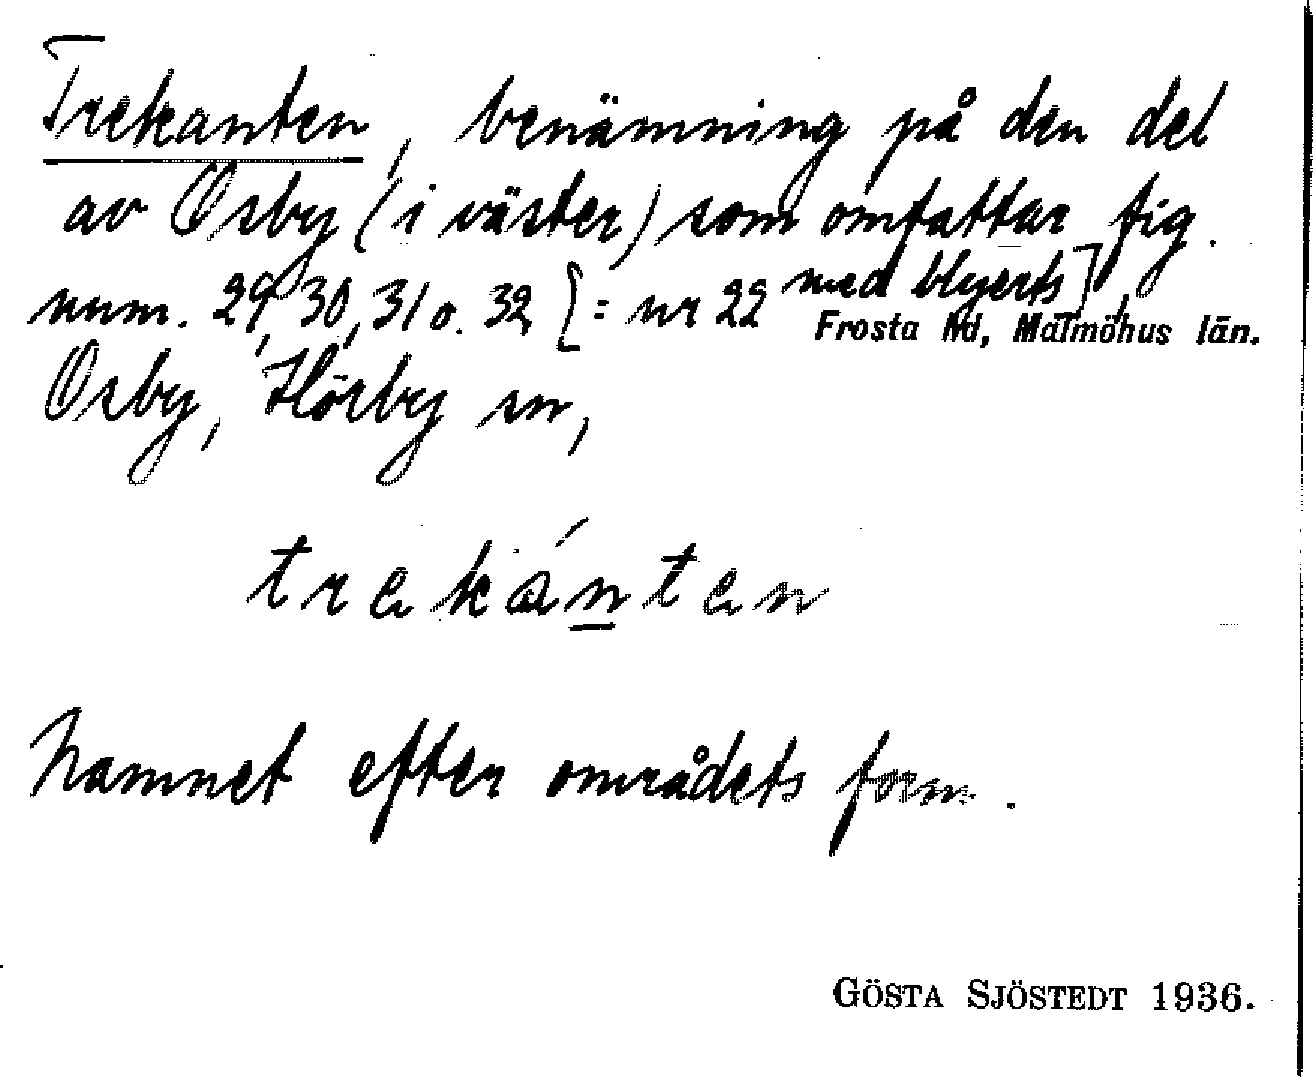 Trekanten, benämning på den del
av Osby (i väster) som omfattar fig.
num. 29, 30, 31 o. 32 [= nr 22 med blyerts],
Frosta hd, Malmöhus län.
Osby, Hörby sn,
trekánten
Namnet efter områdets form.
GÖSTA SJÖSTEDT 1936.